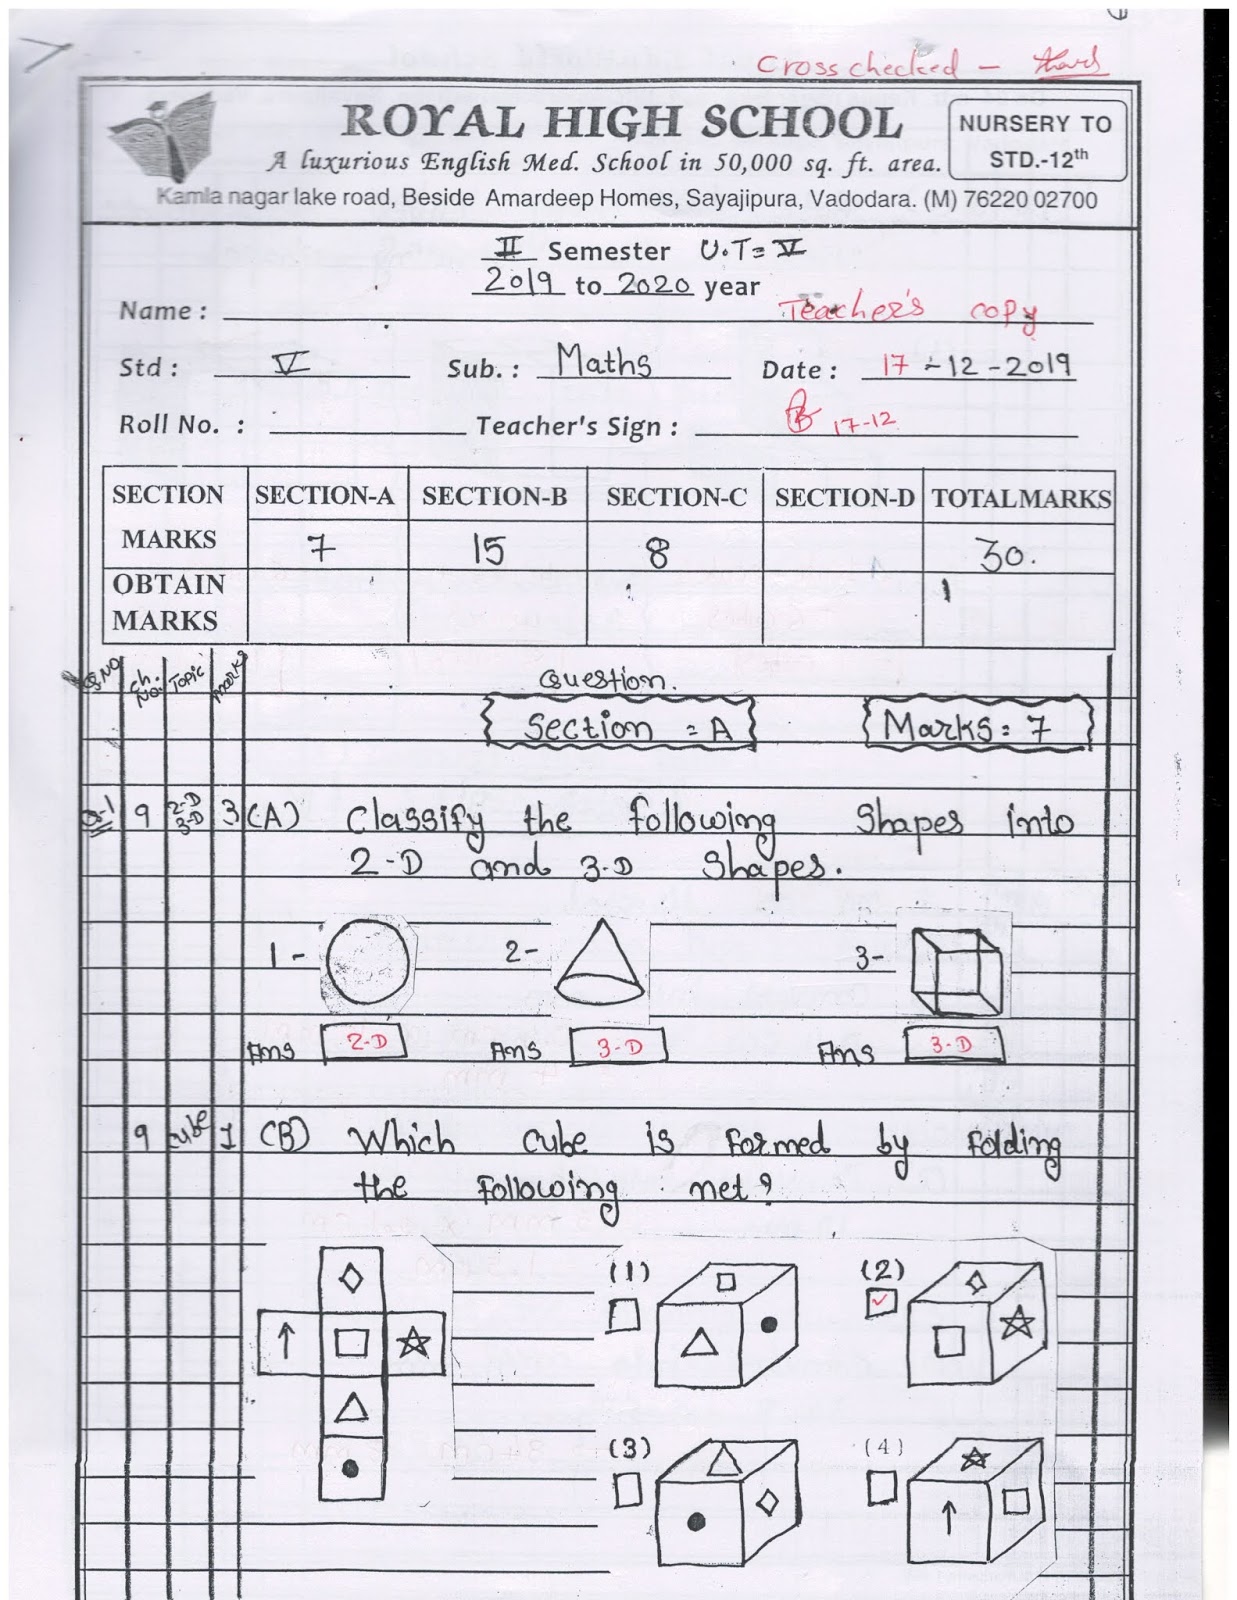 Cross checked -
ROYAL HIGH SCHOOL
NURSERY TO
STD.-12th
A luxurious English Med. School in 50,000 sq. ft. area.
Kamla nagar lake road, Beside Amardeep Homes, Sayajipura, Vadodara. (M) 76220 02700
II Semester U.T= V
2019 to 2020 year
Name : Teacher's copy
Std : V Sub. : Maths Date : 17 - 12 - 2019
Roll No. : Teacher's Sign : 17-12
SECTION SECTION-A SECTION-B SECTION-C SECTION-D TOTAL MARKS
MARKS 7 15 8 30.
OBTAIN
MARKS
Q.NO Ch. No. Topic Marks Question.
Section = A Marks = 7
Q-1 9 2-D 3-D 3 (A) Classify the following shapes into
2-D and 3-D shapes.
1 - 2- 3-
Ans 2-D Ans 3-D Ans 3-D
9 cube 1 (B) Which cube is formed by folding
the following net?
(1) (2)
(3) (4)